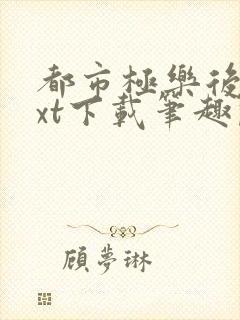 都市極樂後
xt下載筆趣
顧夢琳